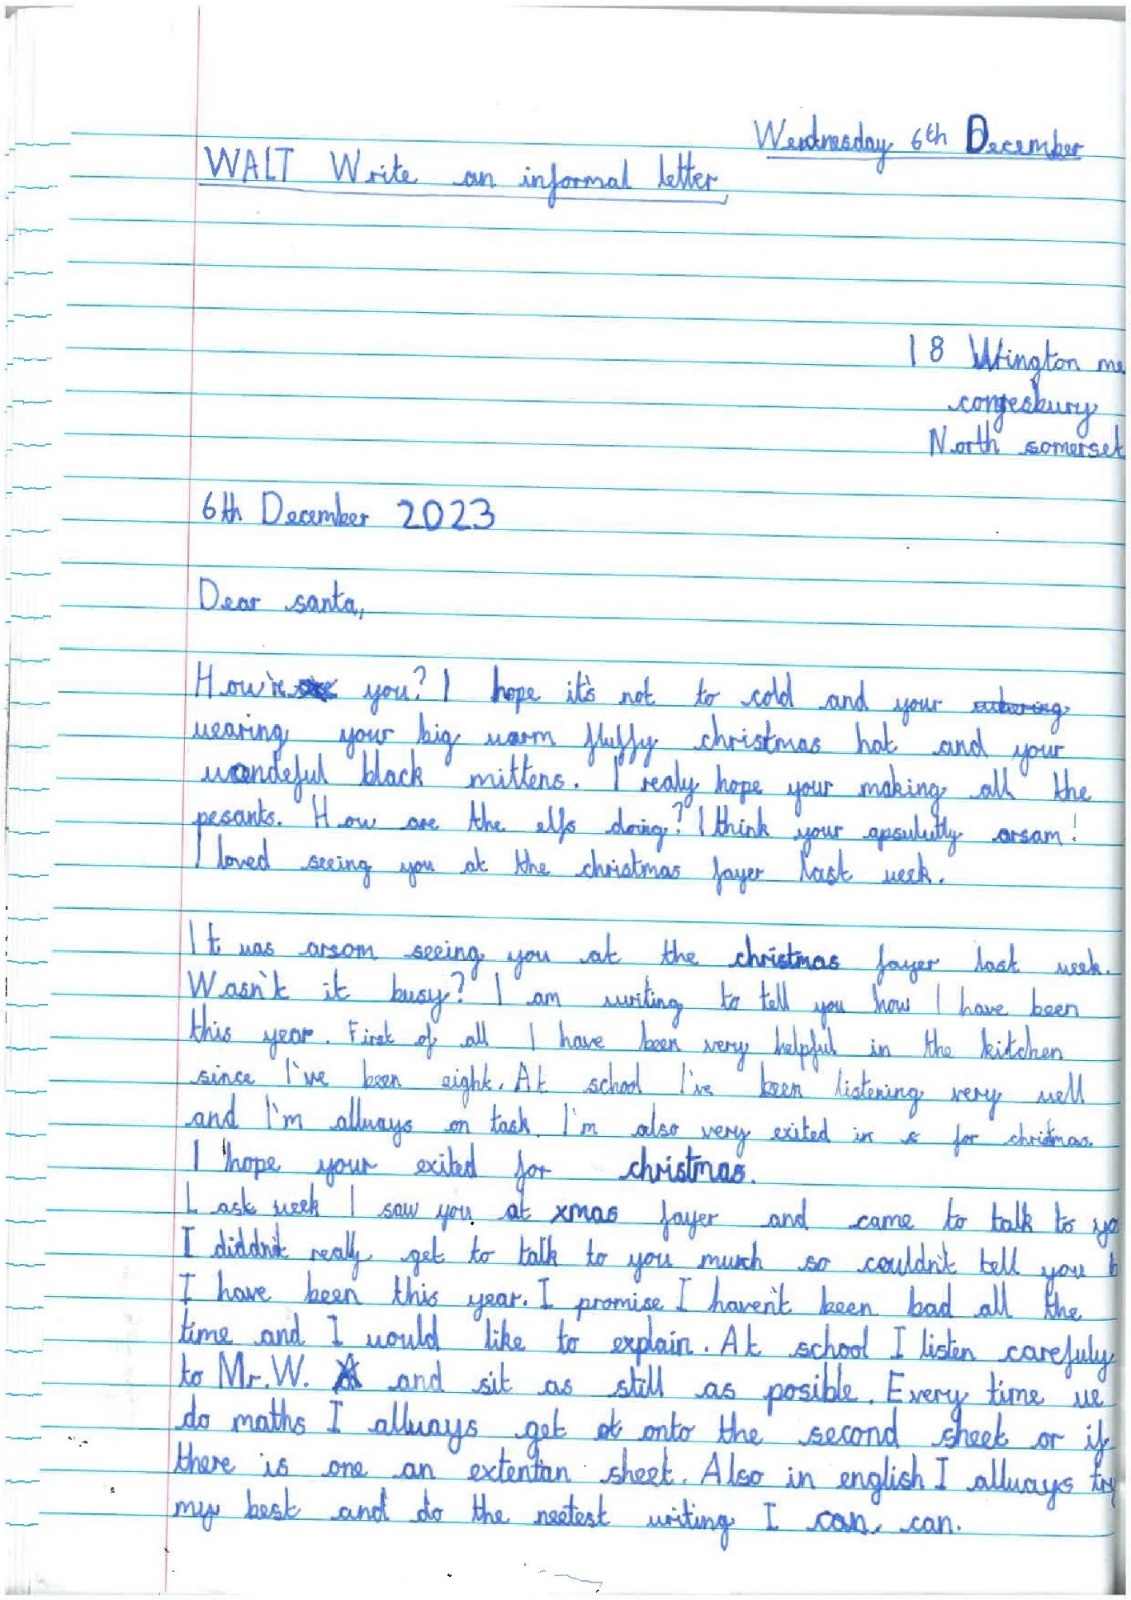 Wednesday 6th December
WALT Write an informal letter
18 Wrington me
congesbury
North somerset
6th December 2023
Dear santa,
How're you? I hope it's not to cold and your
wearing your big warm fluffy christmas hat and your
wondeful black mittens. I realy hope your making all the
pesants. How are the elfs doing? I think your apsulutly arsam!
I loved seeing you at the christmas fayer last week.
It was arsom seeing you at the christmas fayer last week.
Wasn't it busy? I am writing to tell you how I have been
this year. First of all I have been very helpful in the kitchen
since I've been eight. At school I've been listening very well
and I'm allways on task. I'm also very exited in s for christmas.
I hope your exited for christmas.
Last week I saw you at xmas fayer and came to talk to yo
I diddn't really get to talk to you much so couldn't tell you b
I have been this year. I promise I haven't been bad all the
time and I would like to explain. At school I listen carefuly
to Mr. W. and sit as still as posible. Every time we
do maths I allways get ot onto the second sheet or if
there is one an extentan sheet. Also in english I allways try
my best and do the neetest writing I can, can.